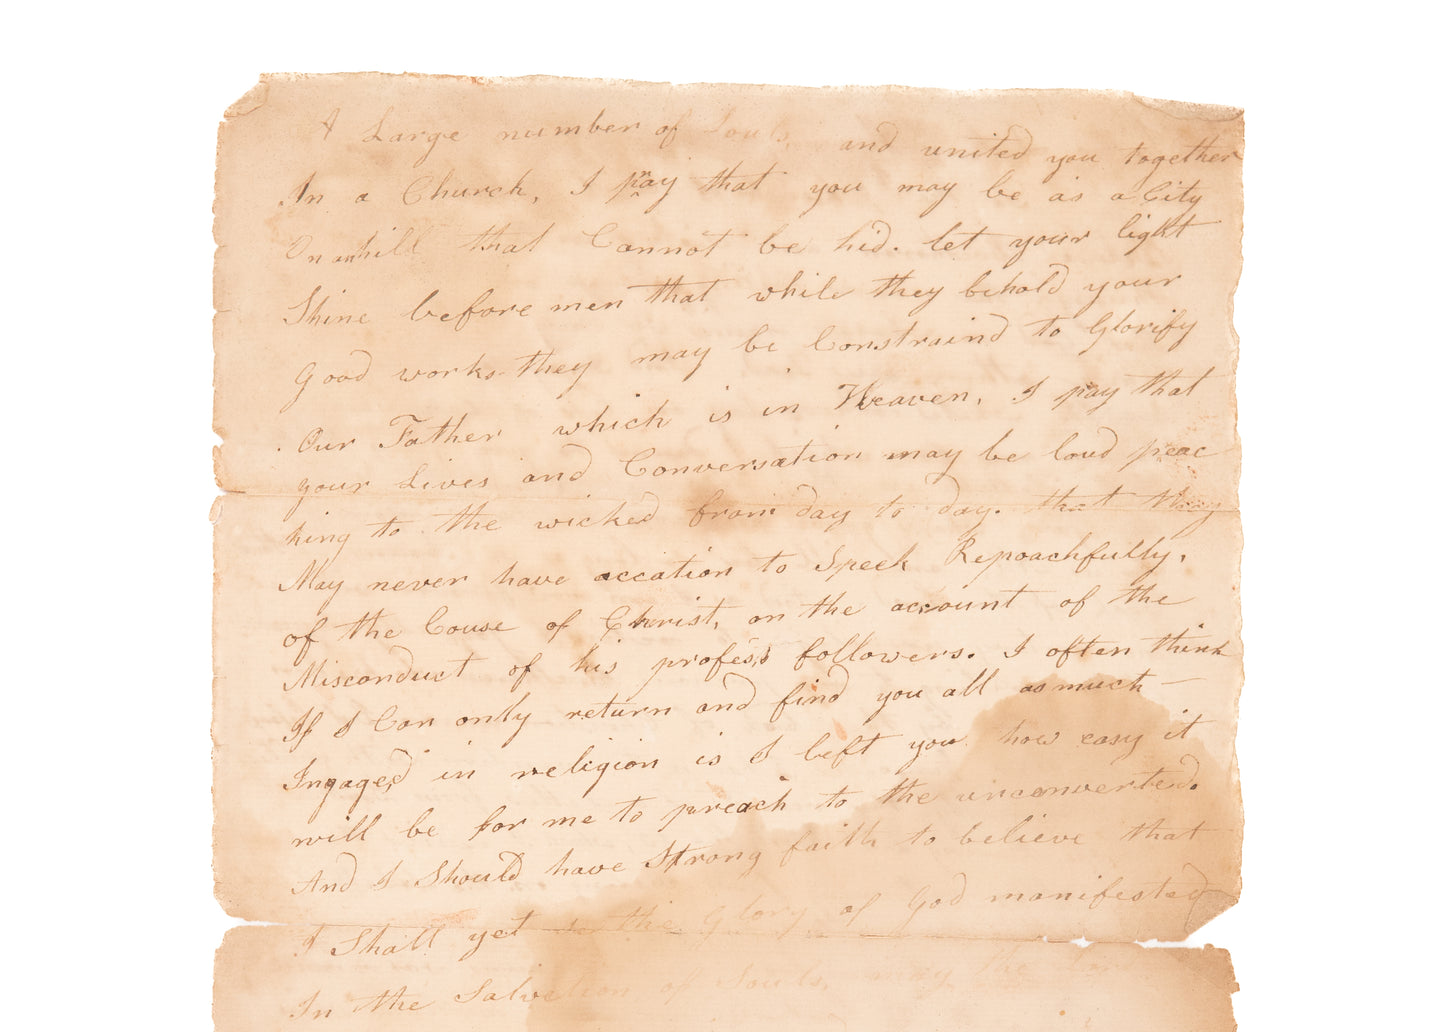 A Large number of Souls, and united you together
In a Church, I pray that you may be as a City
On an hill that Cannot be hid. let your light
Shine before men that while they behold your
Good works they may be Constraind to Glorify
Our Father which is in Heaven, I pay that
your Lives and Conversation may be loud peac
hing to the wicked from day to day. that they
May never have accation to Speek Repoachfully,
of the Couse of Christ, on the account of the
Misconduct of his profess'd followers. I often think
If I Can only return and find you all as much —
Ingaged in religion is I left you how easy it
will be for me to preach to the unconverted.
And I Should have Strong faith to believe that
I Shall yet the Glory of God manifested
In the Salvetion of Souls, may the